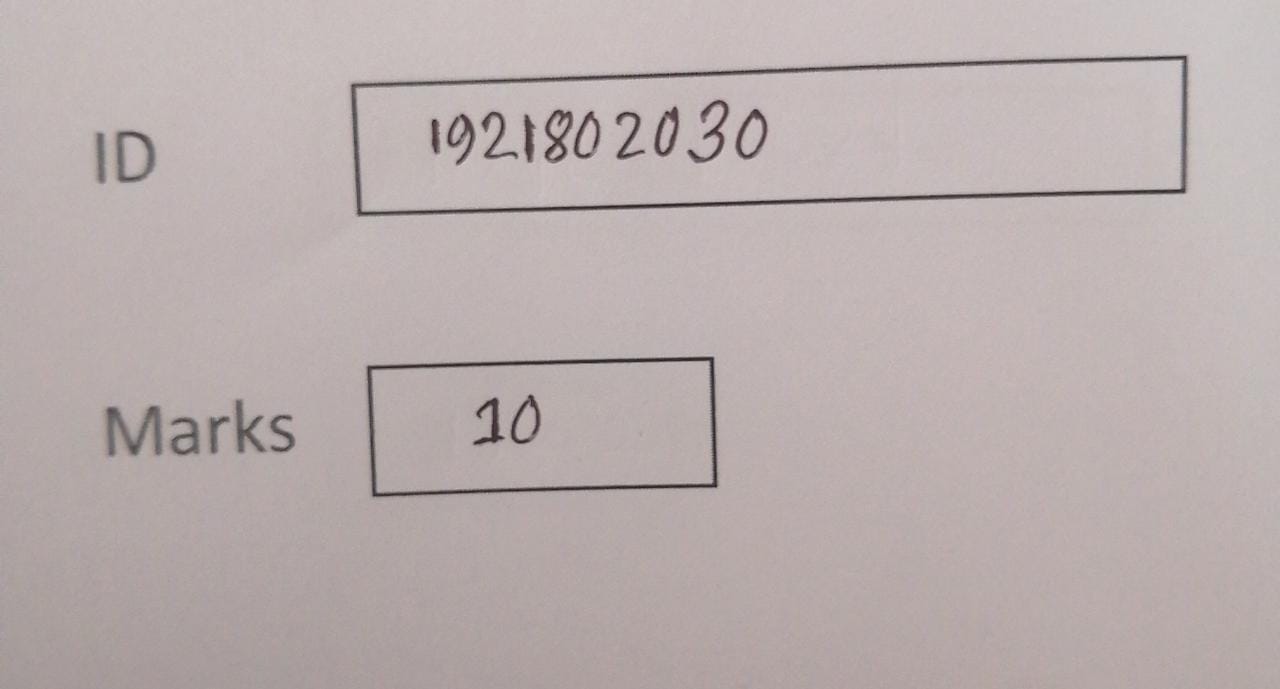 ID 1921802030
Marks 10